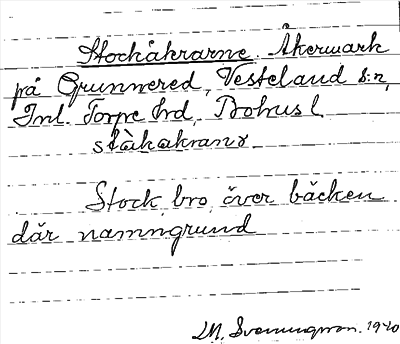 Stockåkrarne. Åkermark
på Grunnered, Vesteland s:n,
Inl. Torpe hrd, Bohusl.
ståkakranɤ.
Stock, bro, över bäcken
där namngrund
M. Svenungsson. 1920